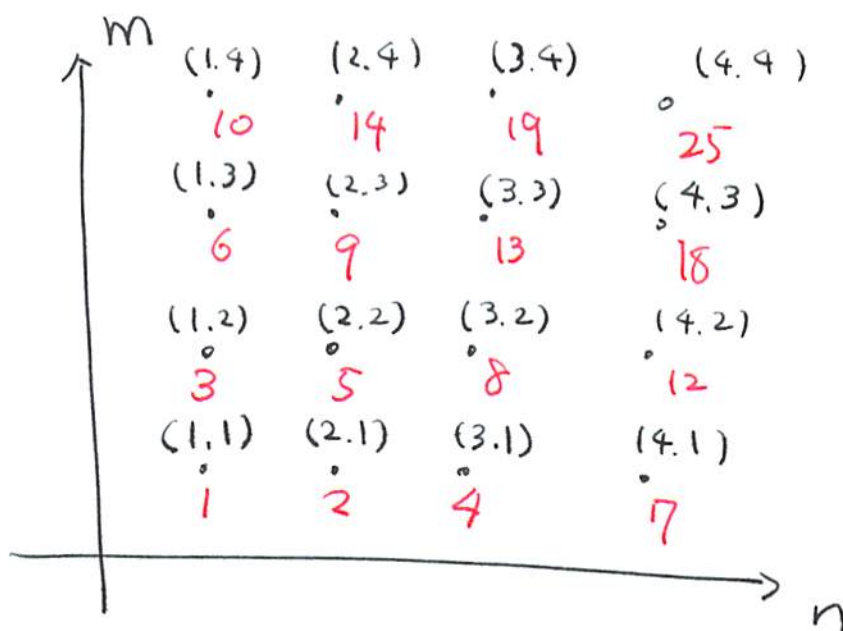 m
(1.4) (2.4) (3.4) (4.4)
10 14 19 25
(1.3) (2.3) (3.3) (4.3)
6 9 13 18
(1.2) (2.2) (3.2) (4.2)
3 5 8 12
(1,1) (2.1) (3.1) (4.1)
1 2 4 7
n